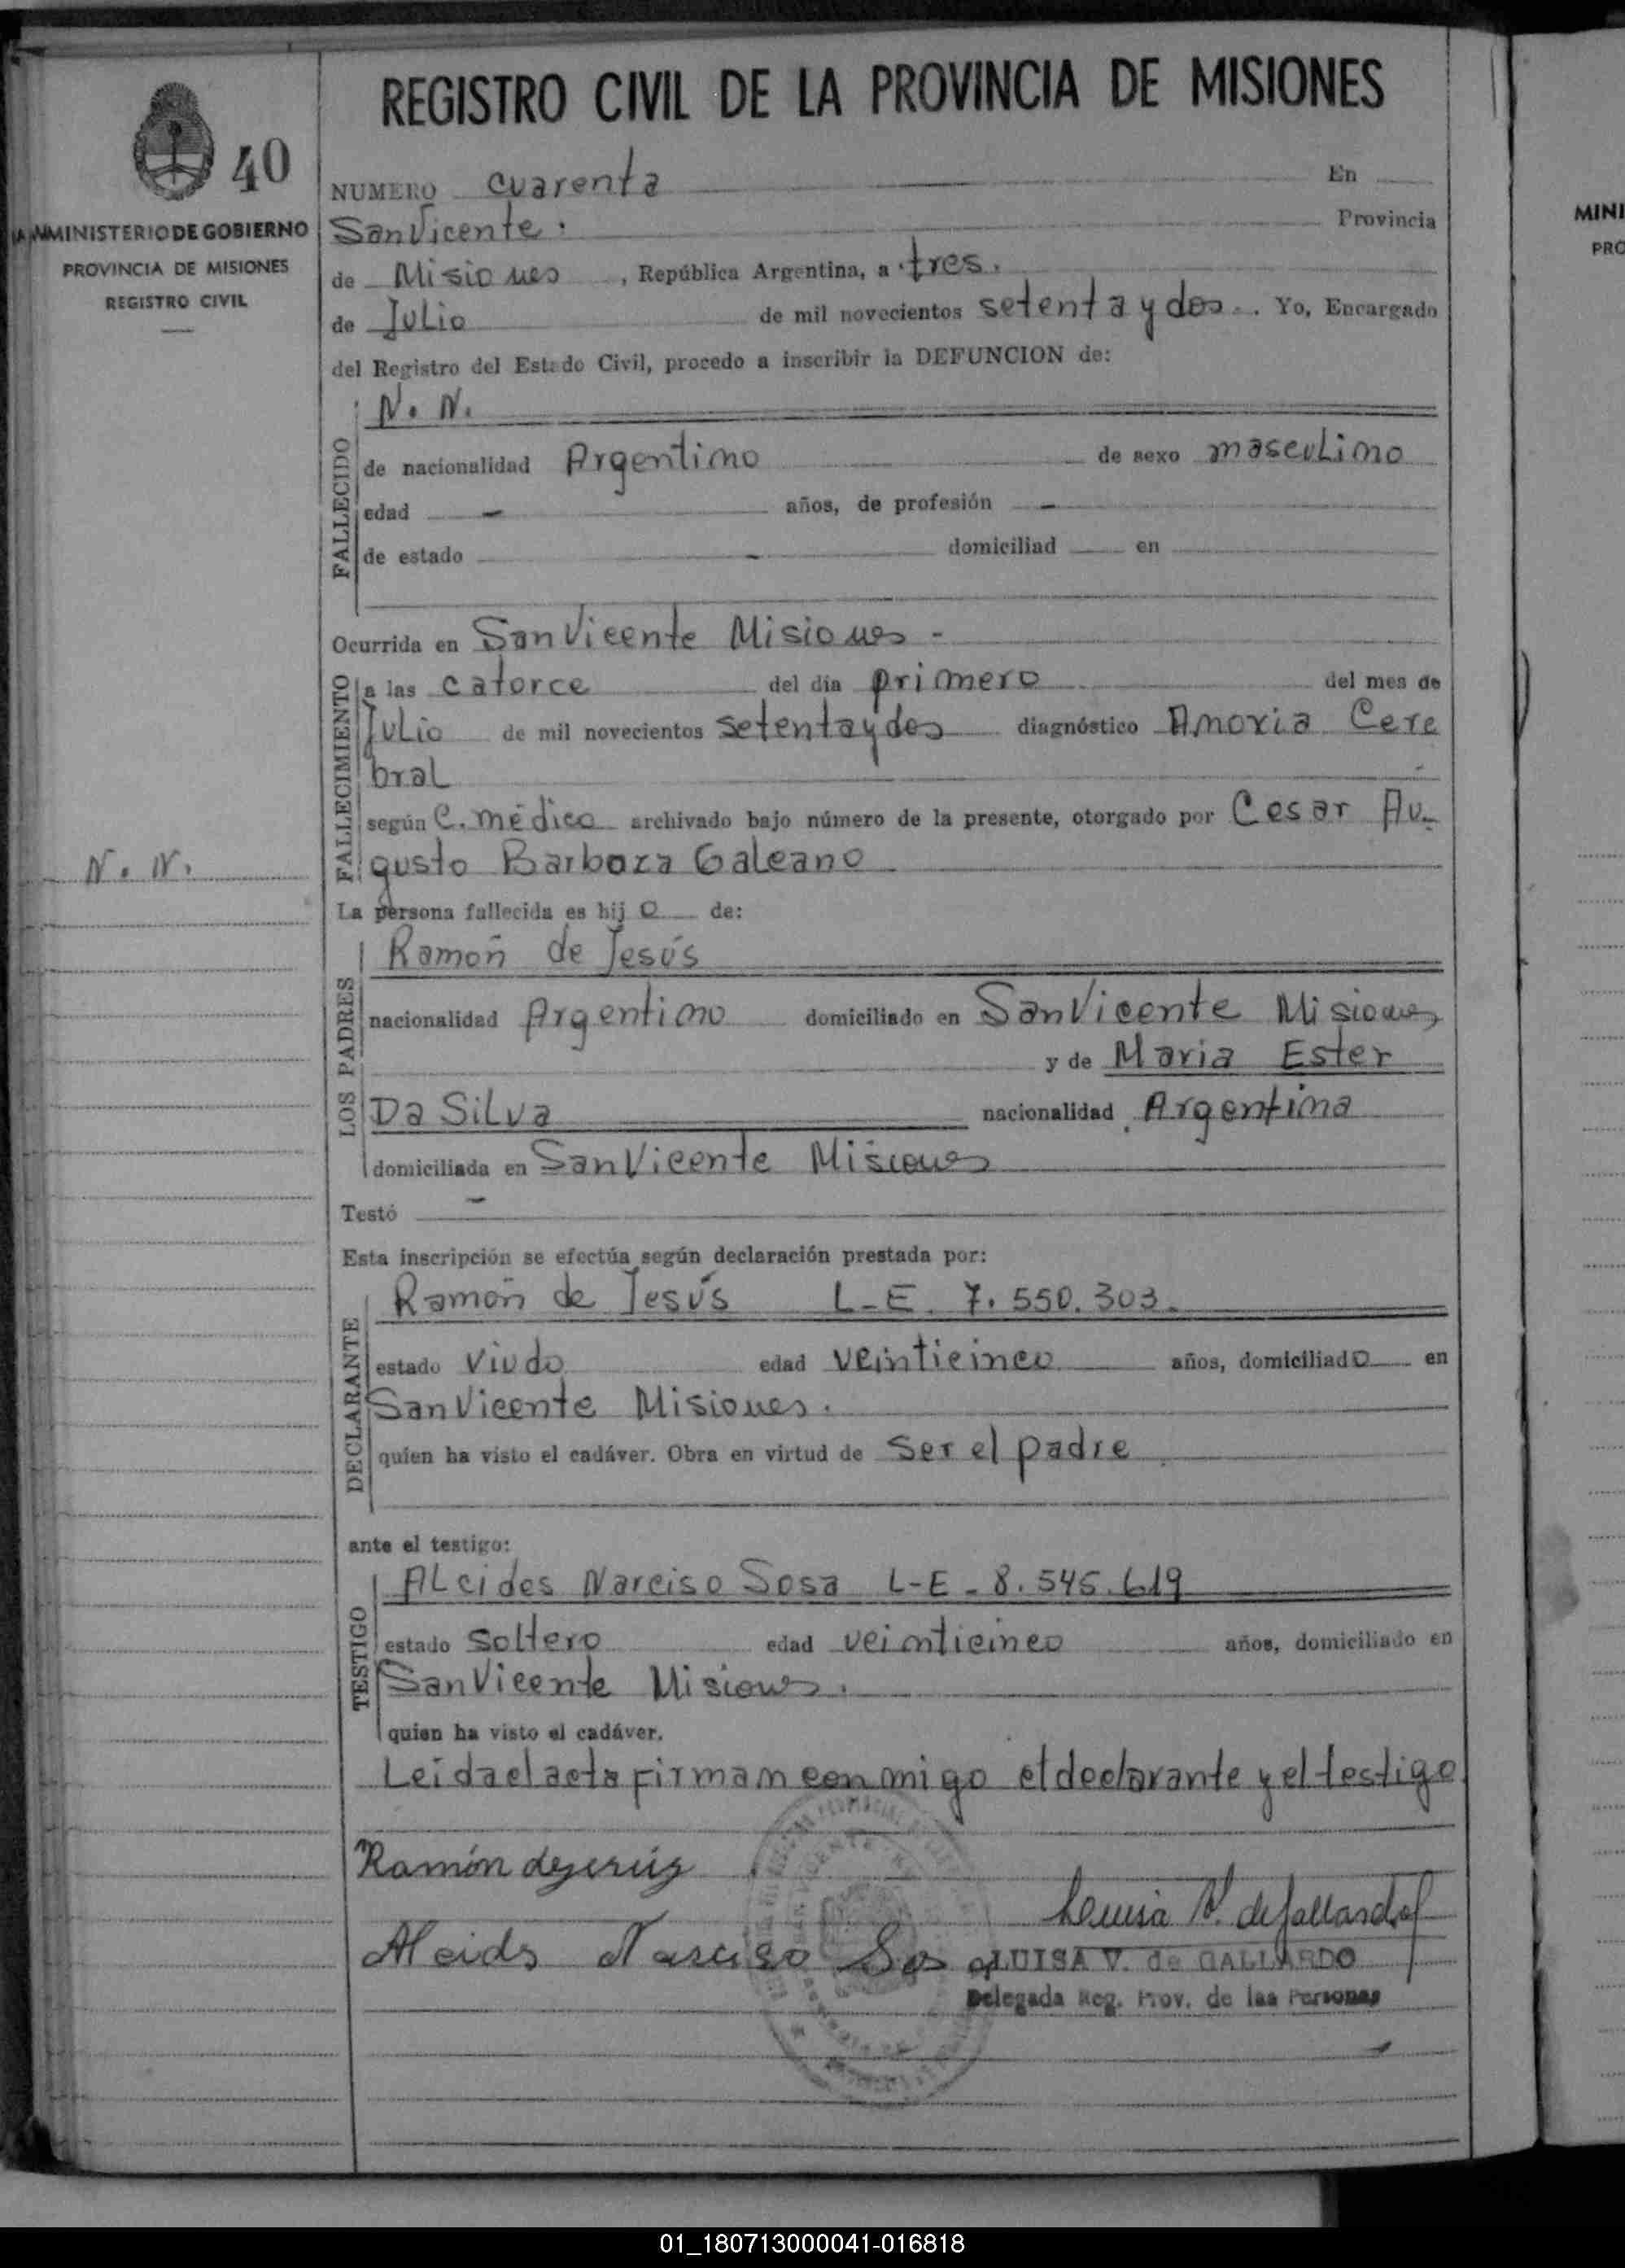 REGISTRO CIVIL DE LA PROVINCIA DE MISIONES
40
MINISTERIO DE GOBIERNO
PROVINCIA DE MISIONES
REGISTRO CIVIL
NUMERO cuarenta En
San Vicente. Provincia
de Misiones, República Argentina, a tres.
de Julio de mil novecientos setenta y dos. Yo, Encargado
del Registro del Estado Civil, procedo a inscribir la DEFUNCION de:
FALLECIDO
N. N.
de nacionalidad Argentino de sexo masculino
edad - años, de profesión -
de estado - domiciliad en
Ocurrida en San Vicente Misiones -
FALLECIMIENTO
a las catorce del día primero del mes de
Julio de mil novecientos setenta y dos diagnóstico Anoxia Cere
bral
según C. médico archivado bajo número de la presente, otorgado por Cesar Au-
gusto Barboza Galeano
N. N.
La persona fallecida es hijo de:
LOS PADRES
Ramón de Jesús
nacionalidad Argentino domiciliado en San Vicente Misiones
y de Maria Ester
Da Silva nacionalidad Argentina
domiciliada en San Vicente Misiones
Testó -
Esta inscripción se efectúa según declaración prestada por:
DECLARANTE
Ramón de Jesús L-E. 7.550.303.
estado viudo edad veinticinco años, domiciliado en
San Vicente Misiones.
quien ha visto el cadáver. Obra en virtud de ser el padre
ante el testigo:
TESTIGO
Alcides Narciso Sosa L-E-8.545.619
estado soltero edad veinticinco años, domiciliado en
San Vicente Misiones.
quien ha visto el cadáver.
Leida el acta firman conmigo el declarante y el testigo
Ramón dejesús
Luisa V. de Gallardo
Alcides Narciso Sosa
LUISA V. de GALLARDO
Delegada Reg. Prov. de las Personas
MINI
PRO
01_180713000041-016818